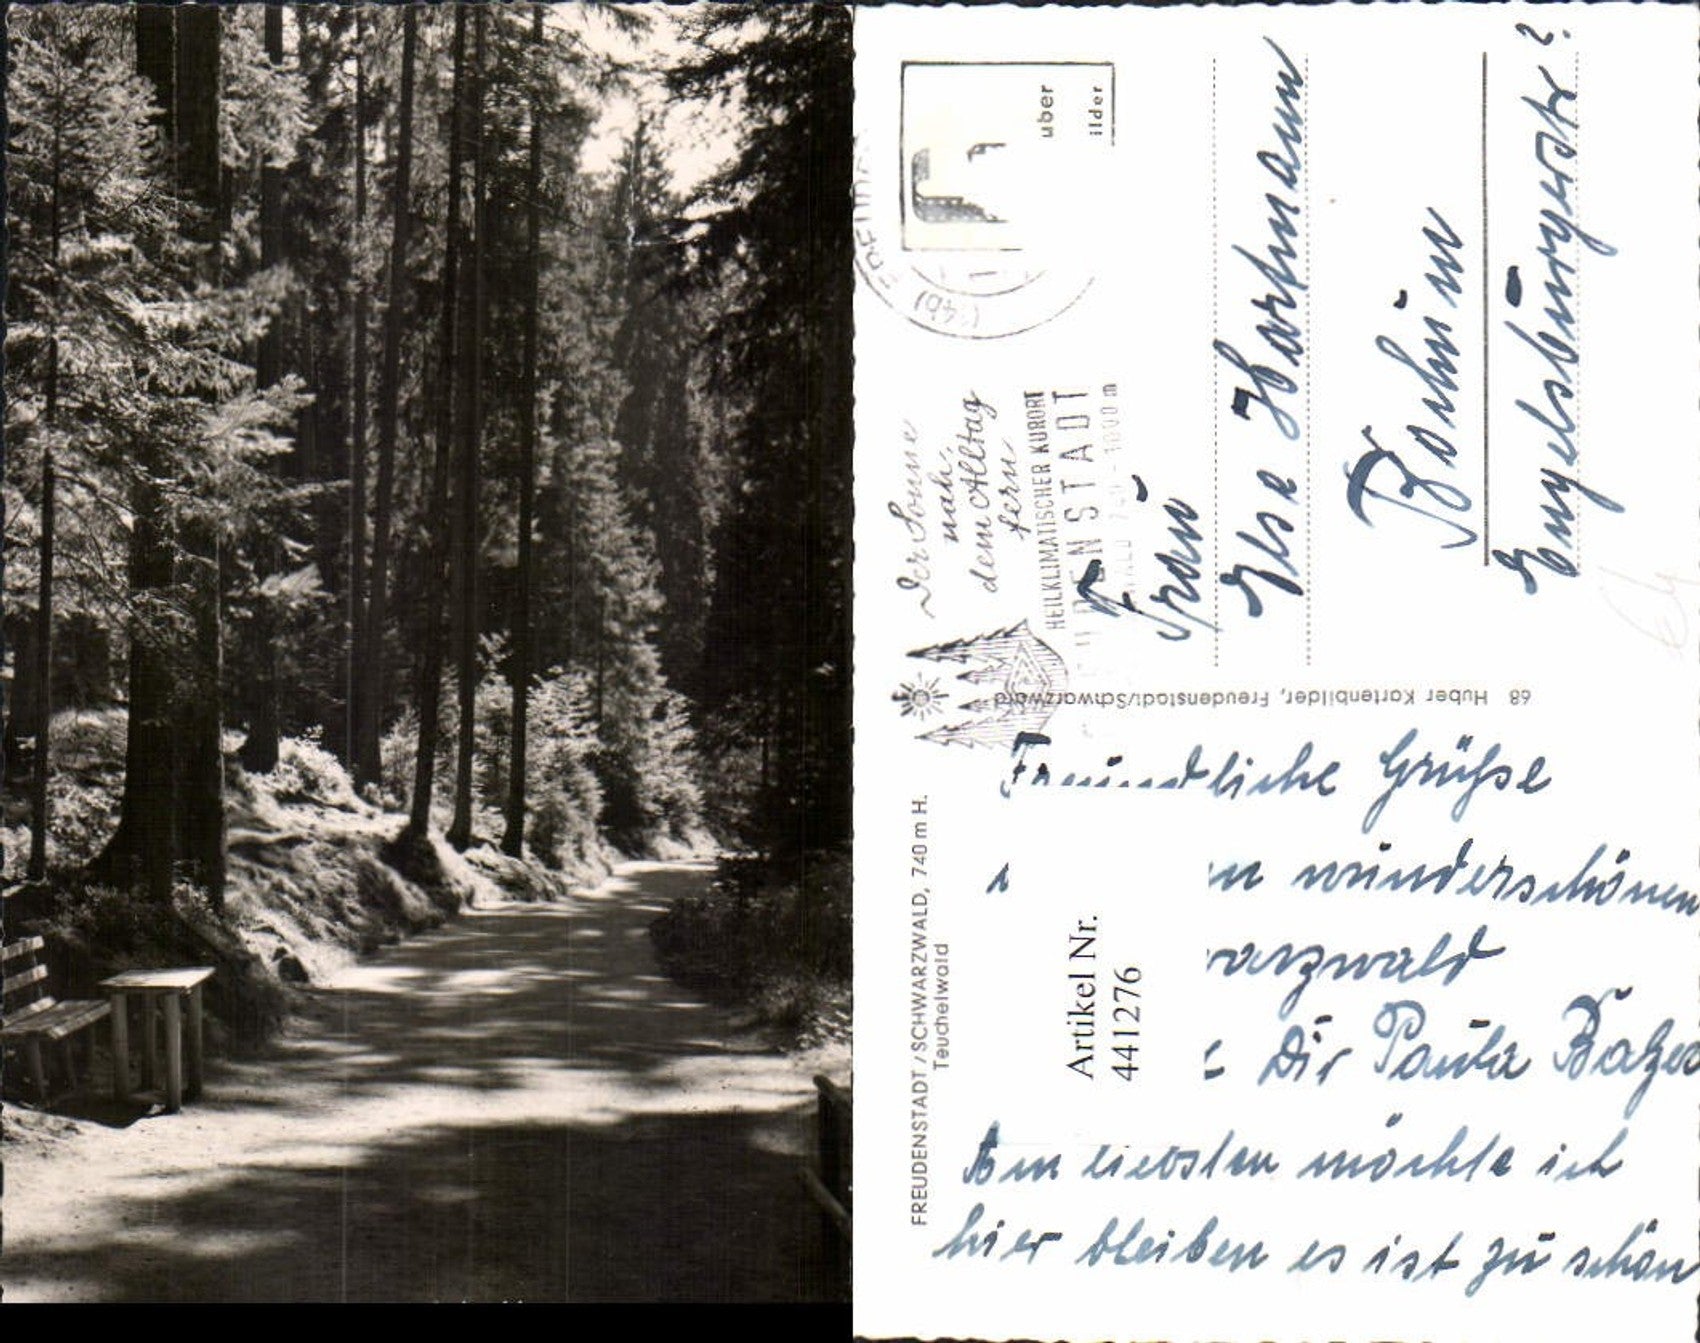 Freundliche Grüße
n wunderschönen
warzwald
Dir Paula
Am liebsten möchte ich
hier bleiben es ist zu schön
FREUDENSTADT / SCHWARZWALD, 740 m H.
Teuchelwald
68 Huber Kartenbilder, Freudenstadt/Schwarzwald
Artikel Nr.
441276
Der Sonne
nah,
dem Alltag
fern
HEILKLIMATISCHER KURORT
FREUDENSTADT
740-1000 m
(14b)
uber
ilder
Frau
Else Hartmann
Bochum
Engelsburgerstr ?